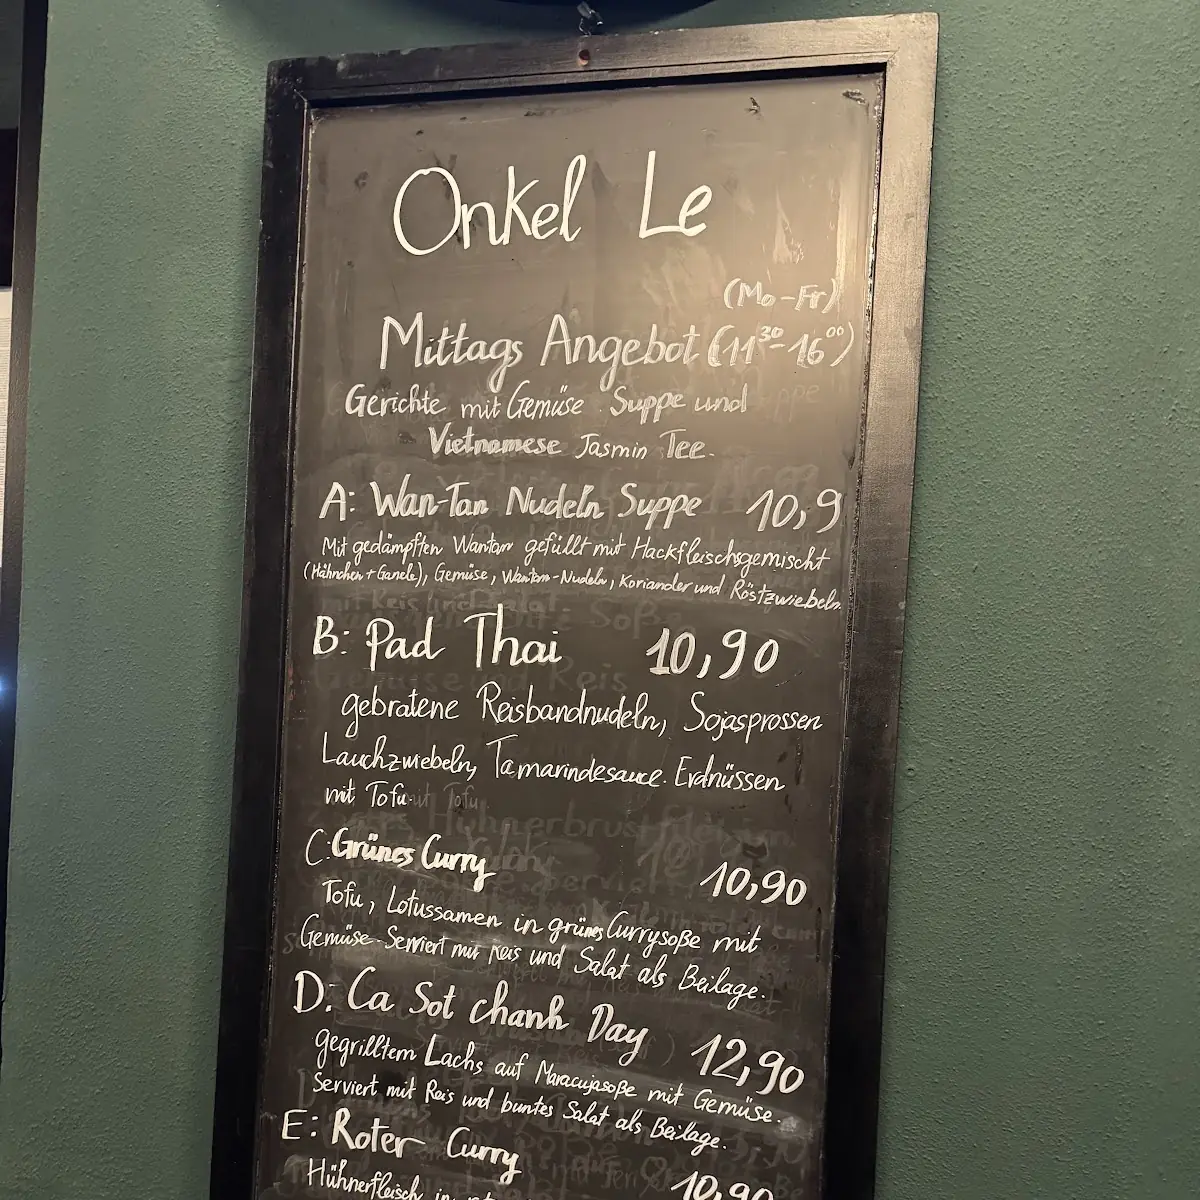 Onkel Le
(Mo-Fr)
Mittags Angebot (11³⁰-16⁰⁰)
Gerichte mit Gemüse. Suppe und
Vietnamese Jasmin Tee.
A: Wan-Tan Nudeln Suppe 10,9
Mit gedämpften Wantan gefüllt mit Hackfleischgemischt
(Hähnchen + Ganele), Gemüse, Wantan-Nudeln, Koriander und Röstzwiebeln.
B: Pad Thai 10,90
gebratene Reisbandnudeln, Sojasprossen
Lauchzwiebeln, Tamarindesauce. Erdnüssen
mit Tofu
C: Grünes Curry 10,90
Tofu, Lotussamen in grünes Currysoße mit
Gemüse. Serviert mit Reis und Salat als Beilage.
D: Ca Sot chanh Day 12,90
gegrilltem Lachs auf Maracujasoße mit Gemüse.
Serviert mit Reis und buntes Salat als Beilage.
E: Roter Curry 10,90
Hühnerfleisch in